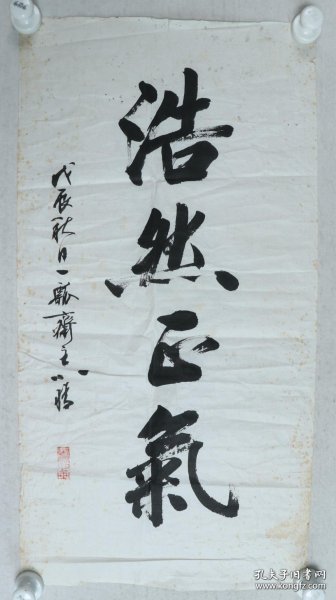 浩然正氣
戊辰秋日一瓢齋主小晴
孔夫子旧书网
www.kongfz.com